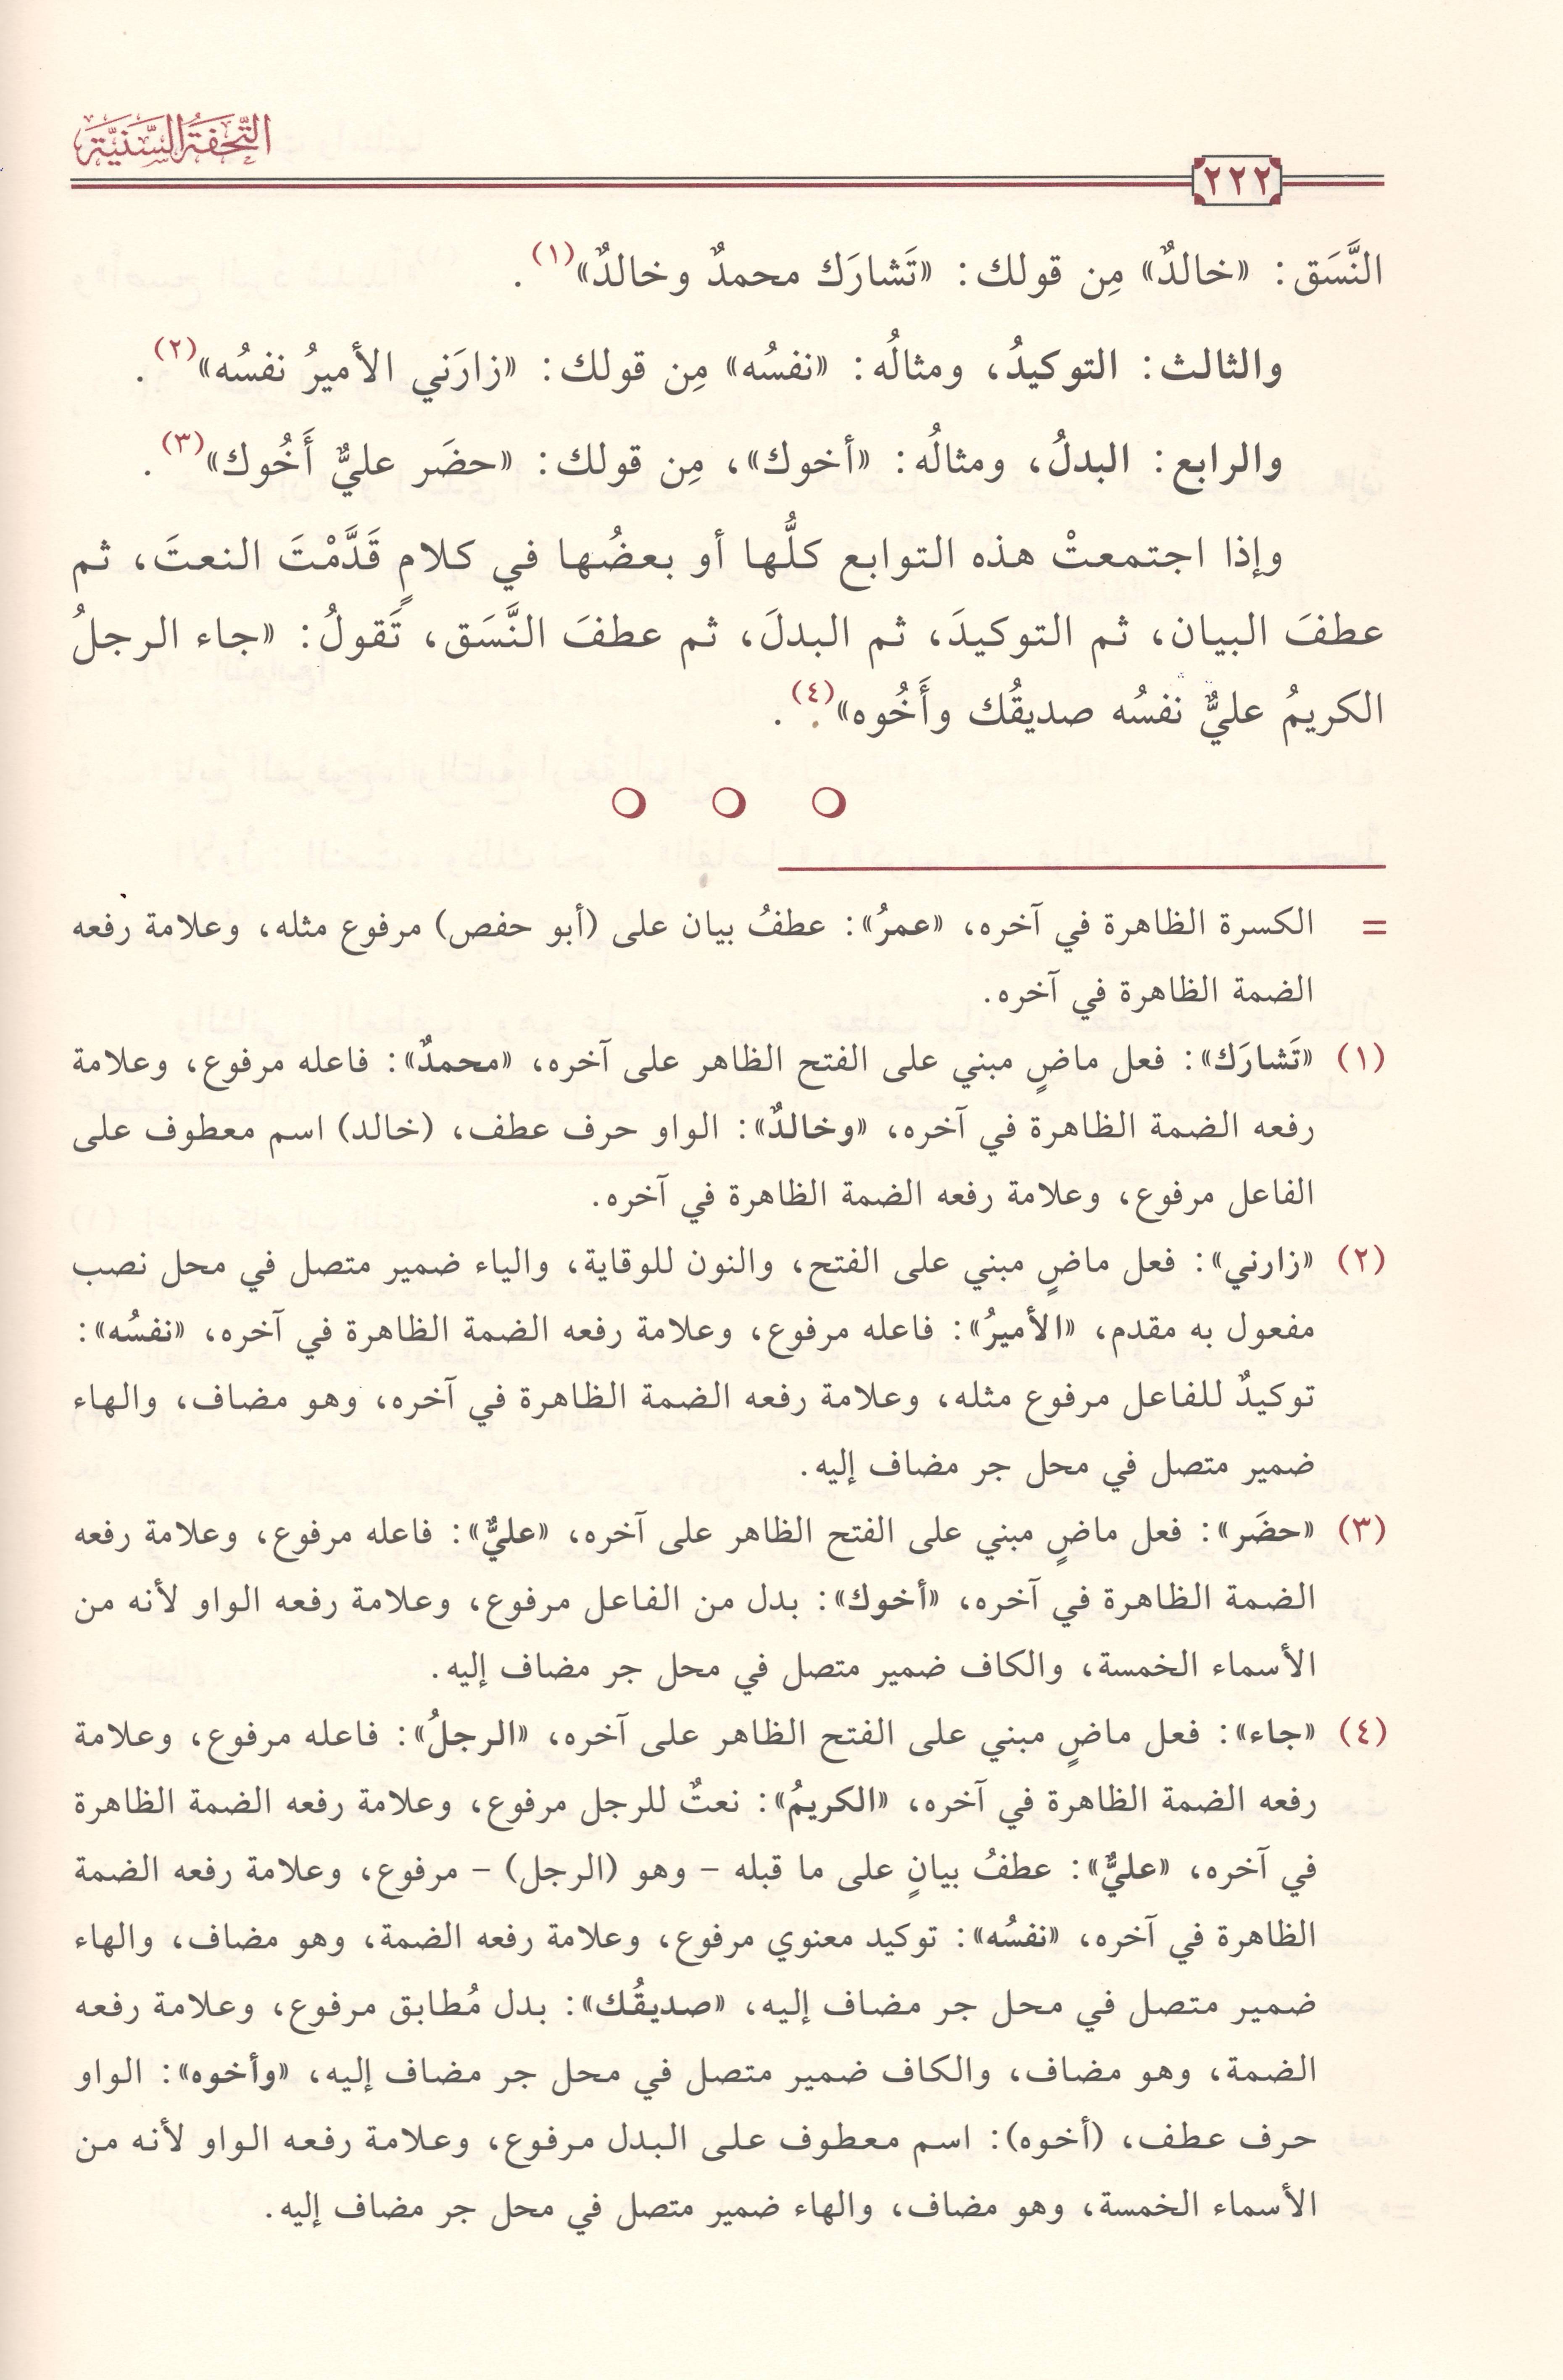 التُّحفَةُ السَّنِيَّة
٢٢٢
النَّسَق: «خالدٌ» مِن قولك: «تَشارَك محمدٌ وخالدٌ»(١).
والثالث: التوكيدُ، ومثالُه: «نفسُه» مِن قولك: «زارَني الأميرُ نفسُه»(٢).
والرابع: البدلُ، ومثالُه: «أخوك»، مِن قولك: «حضَر عليٌّ أَخُوك»(٣).
وإذا اجتمعتْ هذه التوابع كلُّها أو بعضُها في كلامٍ قَدَّمْتَ النعتَ، ثم
عطفَ البيان، ثم التوكيدَ، ثم البدلَ، ثم عطفَ النَّسَق، تَقولُ: «جاء الرجلُ
الكريمُ عليٌّ نفسُه صديقُك وأَخُوه»(٤).
= الكسرة الظاهرة في آخره، «عمرُ»: عطفُ بيان على (أبو حفص) مرفوع مثله، وعلامة رفعه
الضمة الظاهرة في آخره.
(١) «تَشارَك»: فعل ماضٍ مبني على الفتح الظاهر على آخره، «محمدٌ»: فاعله مرفوع، وعلامة
رفعه الضمة الظاهرة في آخره، «وخالدٌ»: الواو حرف عطف، (خالد) اسم معطوف على
الفاعل مرفوع، وعلامة رفعه الضمة الظاهرة في آخره.
(٢) «زارني»: فعل ماضٍ مبني على الفتح، والنون للوقاية، والياء ضمير متصل في محل نصب
مفعول به مقدم، «الأميرُ»: فاعله مرفوع، وعلامة رفعه الضمة الظاهرة في آخره، «نفسُه»:
توكيدٌ للفاعل مرفوع مثله، وعلامة رفعه الضمة الظاهرة في آخره، وهو مضاف، والهاء
ضمير متصل في محل جر مضاف إليه.
(٣) «حضَر»: فعل ماضٍ مبني على الفتح الظاهر على آخره، «عليٌّ»: فاعله مرفوع، وعلامة رفعه
الضمة الظاهرة في آخره، «أخوك»: بدل من الفاعل مرفوع، وعلامة رفعه الواو لأنه من
الأسماء الخمسة، والكاف ضمير متصل في محل جر مضاف إليه.
(٤) «جاء»: فعل ماضٍ مبني على الفتح الظاهر على آخره، «الرجلُ»: فاعله مرفوع، وعلامة
رفعه الضمة الظاهرة في آخره، «الكريمُ»: نعتٌ للرجل مرفوع، وعلامة رفعه الضمة الظاهرة
في آخره، «عليٌّ»: عطفُ بيانٍ على ما قبله - وهو (الرجل) - مرفوع، وعلامة رفعه الضمة
الظاهرة في آخره، «نفسُه»: توكيد معنوي مرفوع، وعلامة رفعه الضمة، وهو مضاف، والهاء
ضمير متصل في محل جر مضاف إليه، «صديقُك»: بدل مُطابق مرفوع، وعلامة رفعه
الضمة، وهو مضاف، والكاف ضمير متصل في محل جر مضاف إليه، «وأخوه»: الواو
حرف عطف، (أخوه): اسم معطوف على البدل مرفوع، وعلامة رفعه الواو لأنه من
الأسماء الخمسة، وهو مضاف، والهاء ضمير متصل في محل جر مضاف إليه.